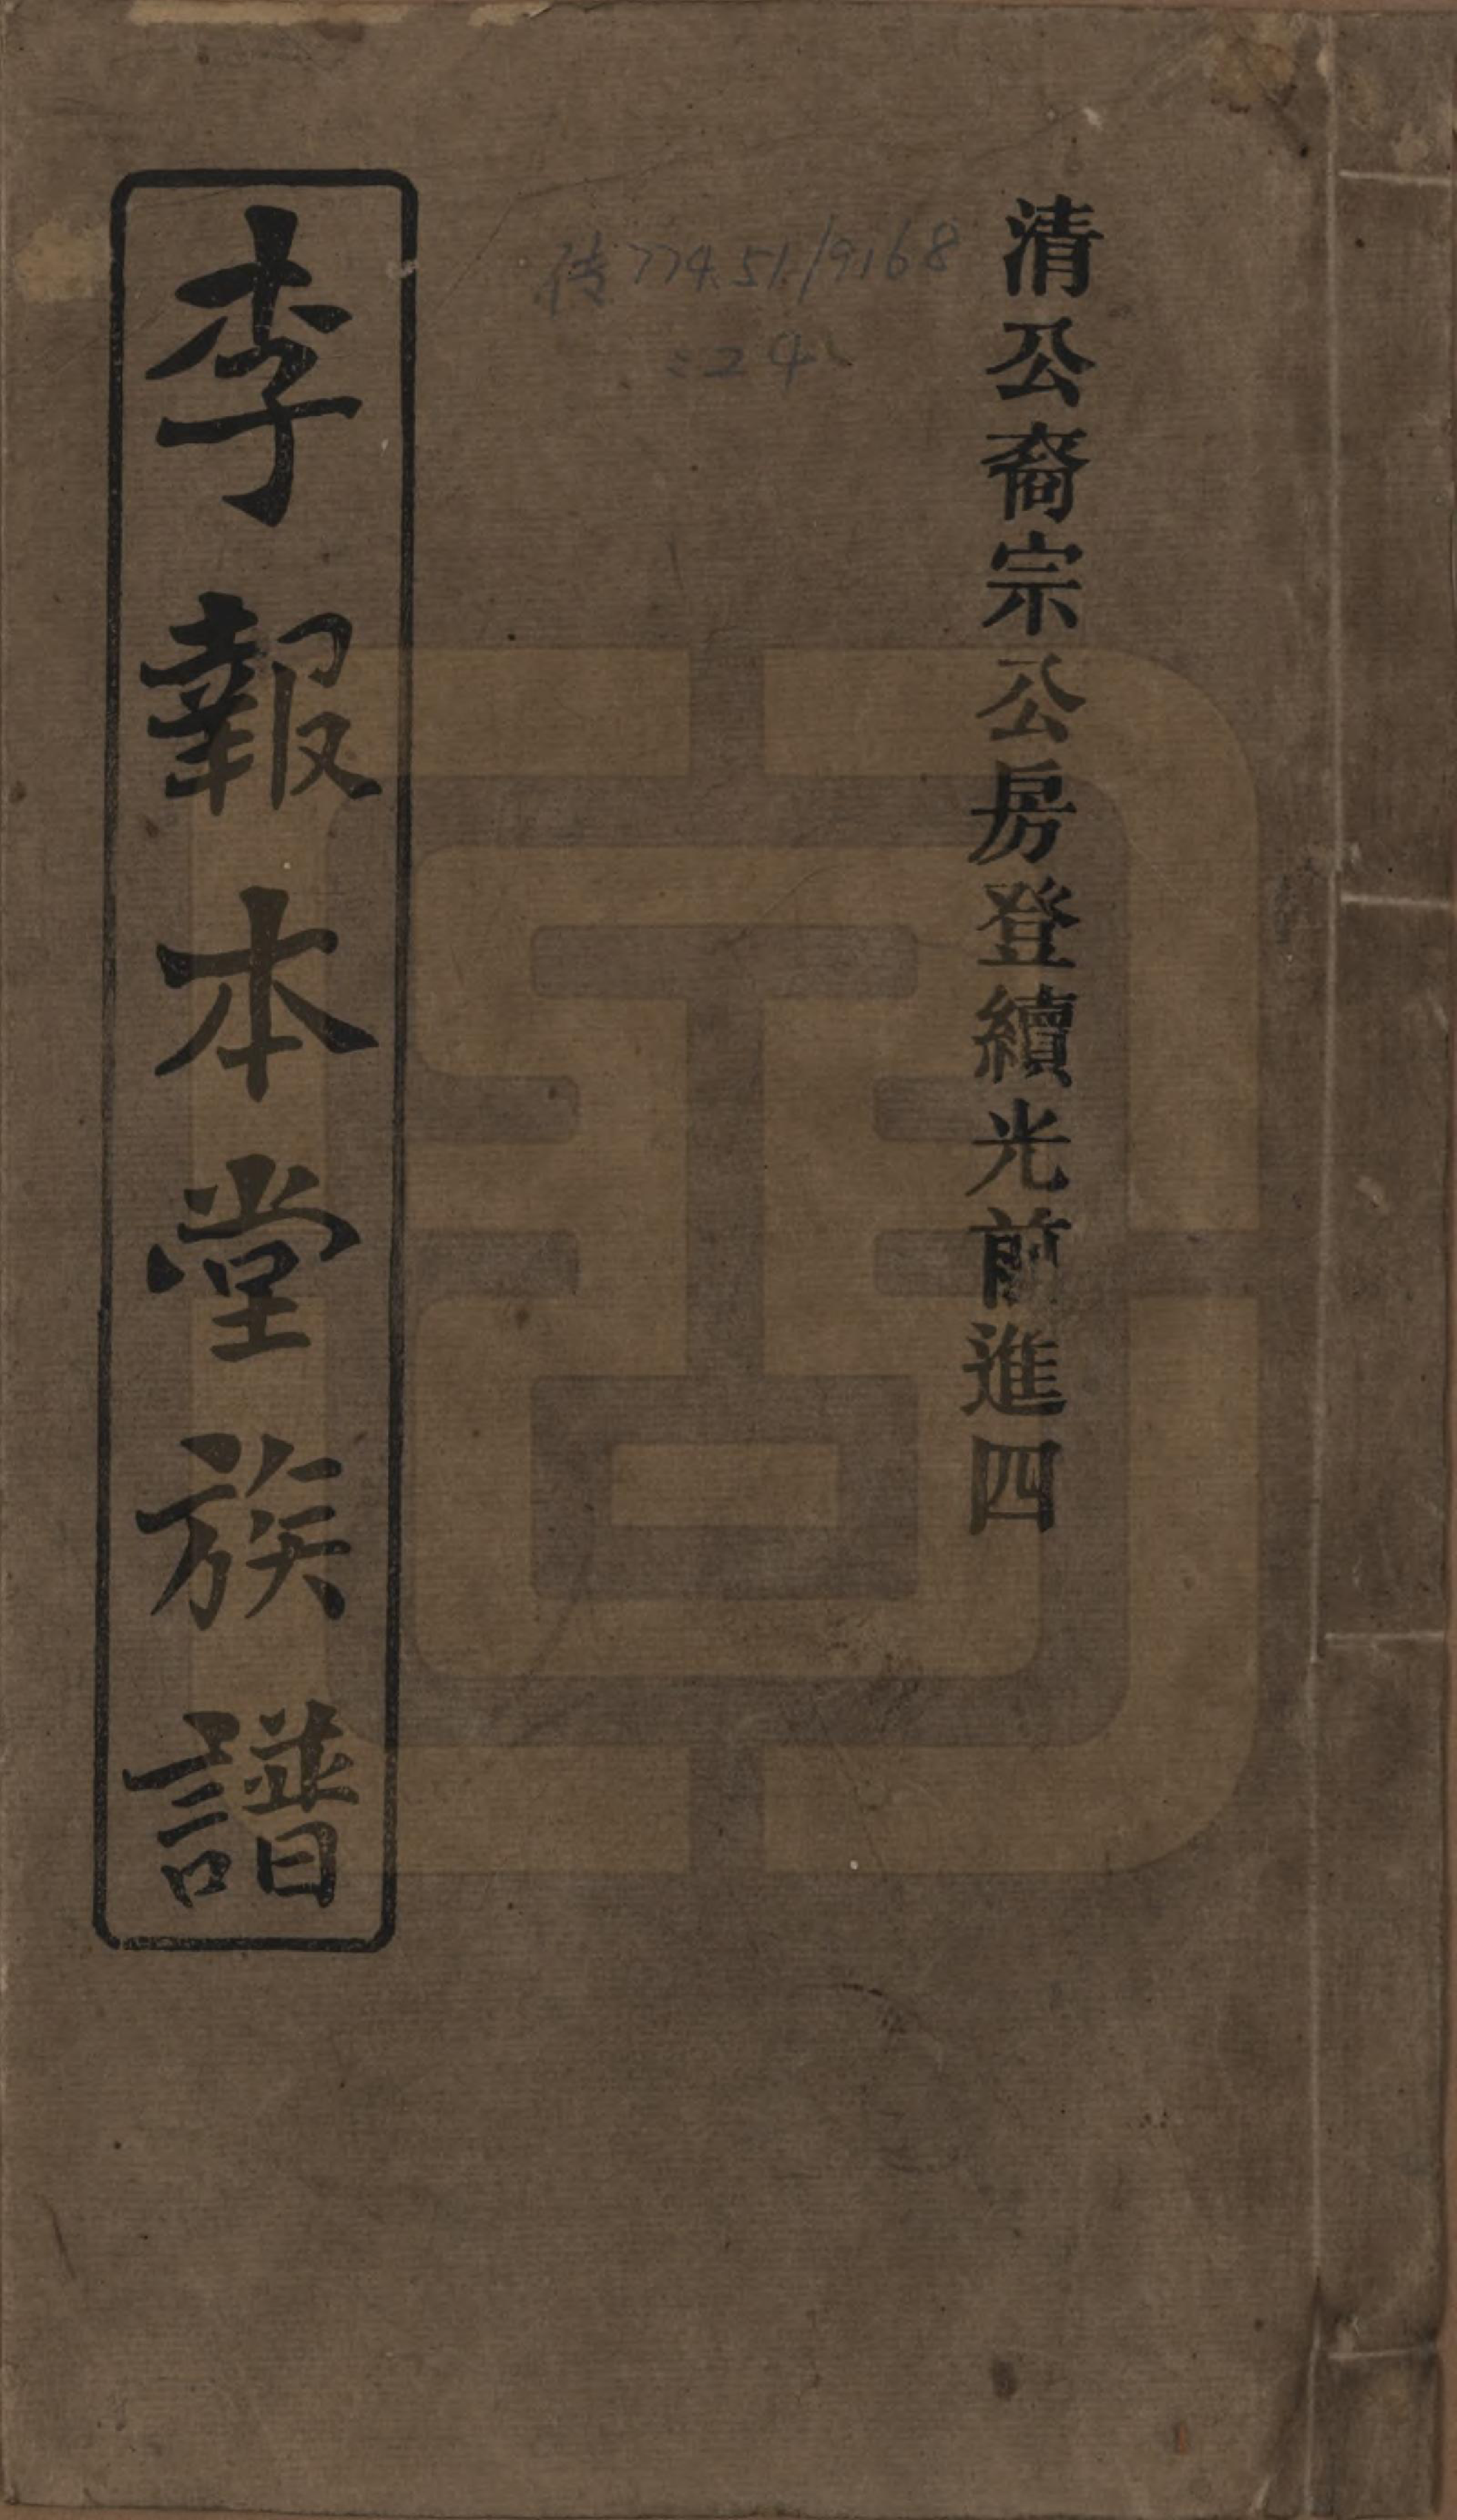 清公裔宗公房登續光前進四
传774.51/9168
:24
李報本堂族譜